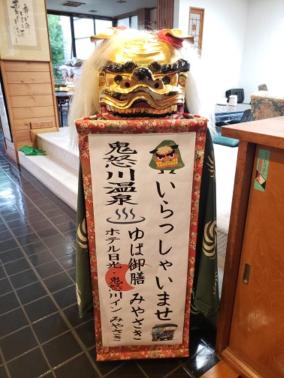 いらっしゃいませ
ゆば御膳 みやざき
鬼怒川温泉
ホテル日光・鬼怒川イン みやざき